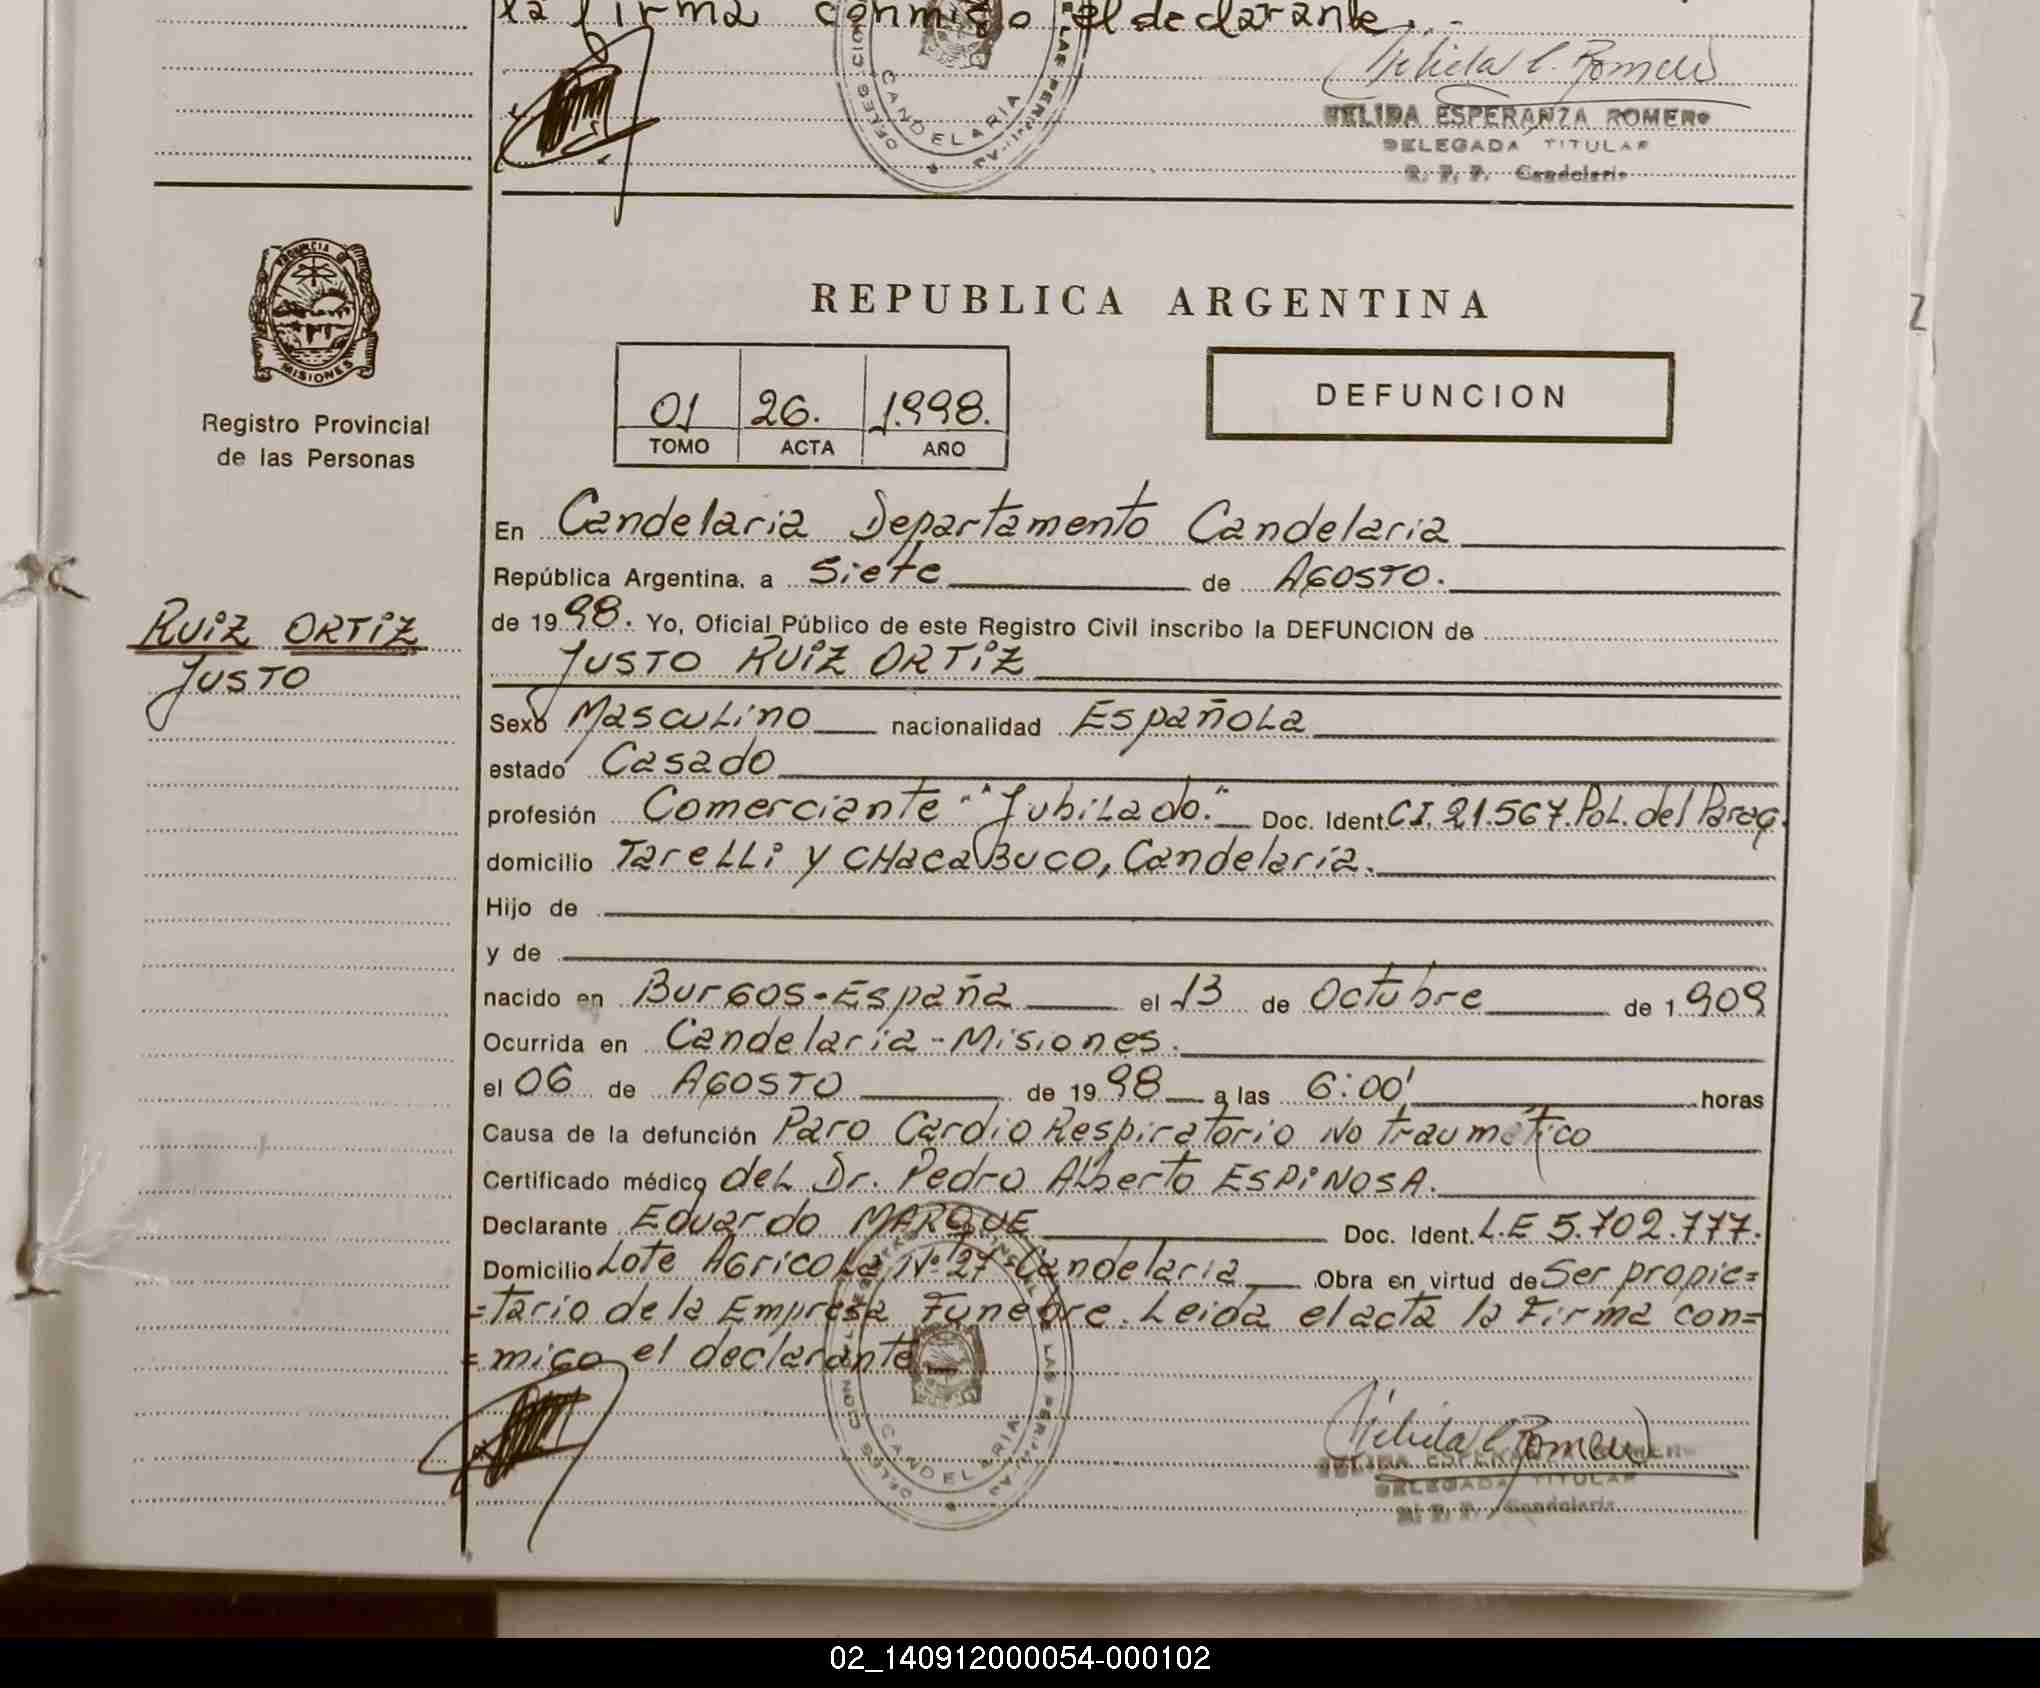 la firma conmigo el declarante.-
NELIDA ESPERANZA ROMERO
DELEGADA TITULAR
R. P. P. Candelaria
CANDELARIA
PROVINCIA
MISIONES
Registro Provincial
de las Personas
RUIZ ORTIZ
JUSTO
REPUBLICA ARGENTINA
01 26. 1.998.
TOMO ACTA AÑO
DEFUNCION
En Candelaria Departamento Candelaria
República Argentina, a Siete de Agosto.
de 1998. Yo, Oficial Público de este Registro Civil inscribo la DEFUNCION de
JUSTO RUIZ ORTIZ
Sexo Masculino nacionalidad Española
estado Casado
profesión Comerciante "Jubilado." Doc. Ident. C.I. 21.567. Pol. del Parag.
domicilio Tarelli y CHacaBuco, Candelaria.
Hijo de
y de
nacido en Burgos-España el 13 de Octubre de 1909
Ocurrida en Candelaria-Misiones.
el 06 de Agosto de 1998 a las 6:00' horas
Causa de la defunción Paro Cardio Respiratorio No traumático
Certificado médico del Dr. Pedro Alberto ESPINOSA.
Declarante Eduardo MARQUE Doc. Ident. L.E 5.702.777.
Domicilio Lote Agricola Nº 27-Candelaria Obra en virtud de Ser propie=
=tario de la Empresa Funebre. Leida el acta la Firma con=
=migo el declarante
CANDELARIA
NELIDA ESPERANZA ROMERO
DELEGADA TITULAR
R. P. P. Candelaria
02_140912000054-000102